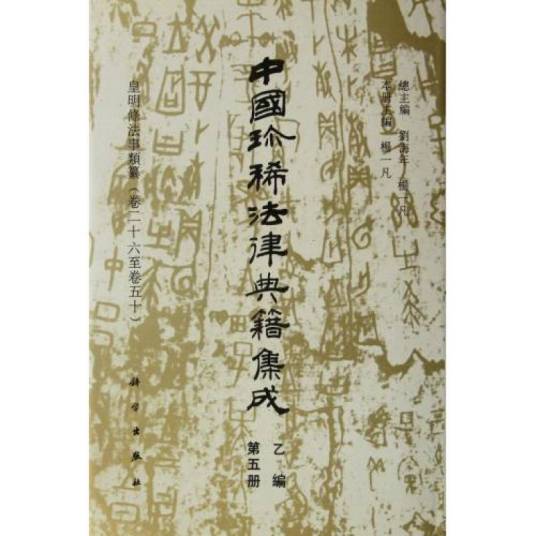 總主編 劉海年 楊一凡
本册主編 楊一凡
中國珍稀法律典籍集成
乙編
第五册
皇明條法事類纂（卷二十六至卷五十）
科学出版社